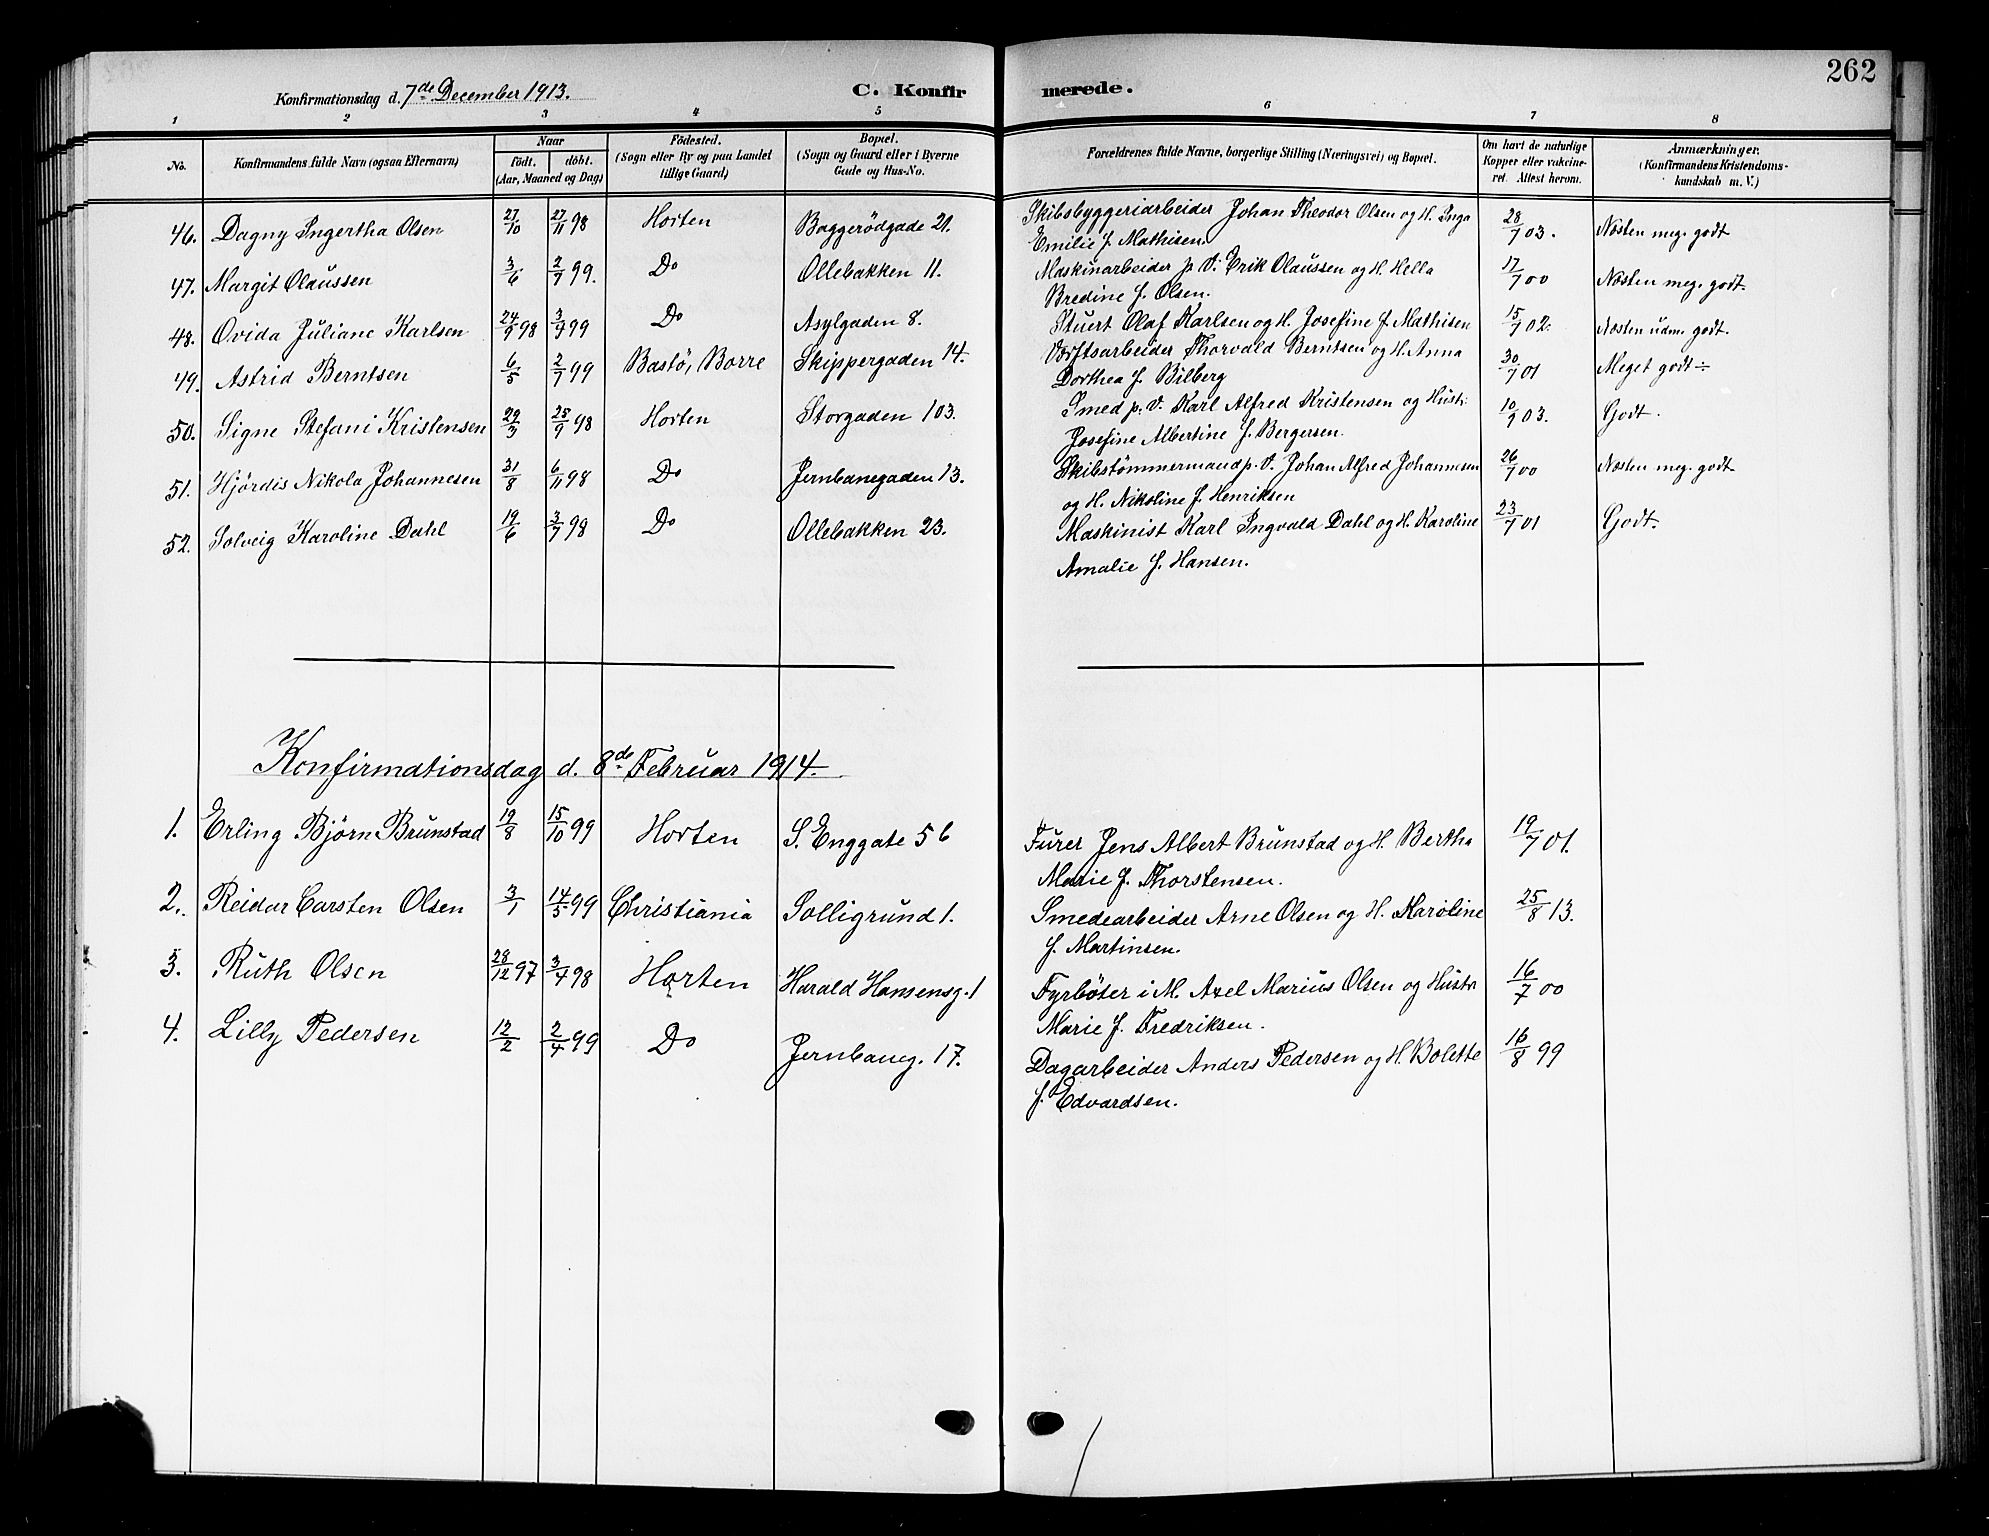 262
Konfirmationsdag d. 7de December 1913. C. Konfir merede.
1 2 3 4 5 6 7 8
No. Konfirmandens fulde Navn (ogsaa Efternavn) Naar födt. döbt. (Aar, Maaned og Dag) Födested. (Sogn eller By og paa Landet tillige Gaard) Bopæl. (Sogn og Gaard eller i Byerne Gade og Hus-No. Forældrenes fulde Navne, borgerlige Stilling (Næringsvei) og Bopæl. Om havt de naturlige Kopper eller vakcineret. Attest herom. Anmærkninger. (Konfirmandens Kristendomskundskab m. V.)
46. Dagny Ingertha Olsen 27/10 27/11 98 Horten Baggerödgade 21. Skibsbyggeriarbeider Johan Theodor Olsen og H. Inga 28/7 03. Næsten meg. godt
Emilie f. Mathisen.
47. Margit Olaussen 3/6 2/7 99. Do Ollebakken 11. Maskinarbeider p. V. Erik Olaussen og H. Hella 17/7 00 Næsten meg. godt.
Bredine f. Olsen.
48. Ovida Juliane Karlsen 24/9 98 3/9 99 Do Asylgaden 8. Stuert Olaf Karlsen og H. Josefine f. Mathisen 15/7 02. Næsten udm. godt.
49. Astrid Berntsen 6/5 2/7 99 Bastö, Borre Skippergaden 14. Værftsarbeider Thorvald Berntsen og H. Anna 30/7 01 Meget godt ÷
Dorthea f. Bilberg
50. Signe Stefani Kristensen 29/3 25/9 98 Horten Storgaden 103. Smed p. V. Karl Alfred Kristensen og Hustr. 10/9 03. Godt.
Josefine Albertine f. Bergersen.
51. Hjördis Nikola Johannesen 31/8 6/11 98 Do Jernbanegaden 13. Skibstömmermand p. V. Johan Alfred Johannesen 26/7 00 Næsten meg. godt
og H. Nikoline f. Henriksen
52. Solveig Karoline Dahl 19/6 3/7 98 Do Ollebakken 23. Maskinist Karl Ingvald Dahl og H. Karoline 23/7 01 Godt.
Amalie f. Hansen.
Konfirmationsdag d. 8de Februar 1914.
1. Erling Björn Brunstad 19/8 15/10 99 Horten S. Enggate 56 Furer Jens Albert Brunstad og H. Bertha 19/7 01.
Marie f. Thorstensen.
2. Reidar Carsten Olsen 3/1 14/5 99 Christiania Solligrund 1. Smedearbeider Arne Olsen og H. Karoline 25/8 13.
f. Martinsen.
3. Ruth Olsen 28/12 97 3/4 98 Horten Harald Hansensg. 1 Fyrböter i M. Axel Marius Olsen og Hustr 16/7 00
Marie f. Fredriksen.
4. Lilly Pedersen 12/2 2/4 99 Do Jernbaneg. 17. Dagarbeider Anders Pedersen og H. Bolette 16/8 99
f. Edvardsen.